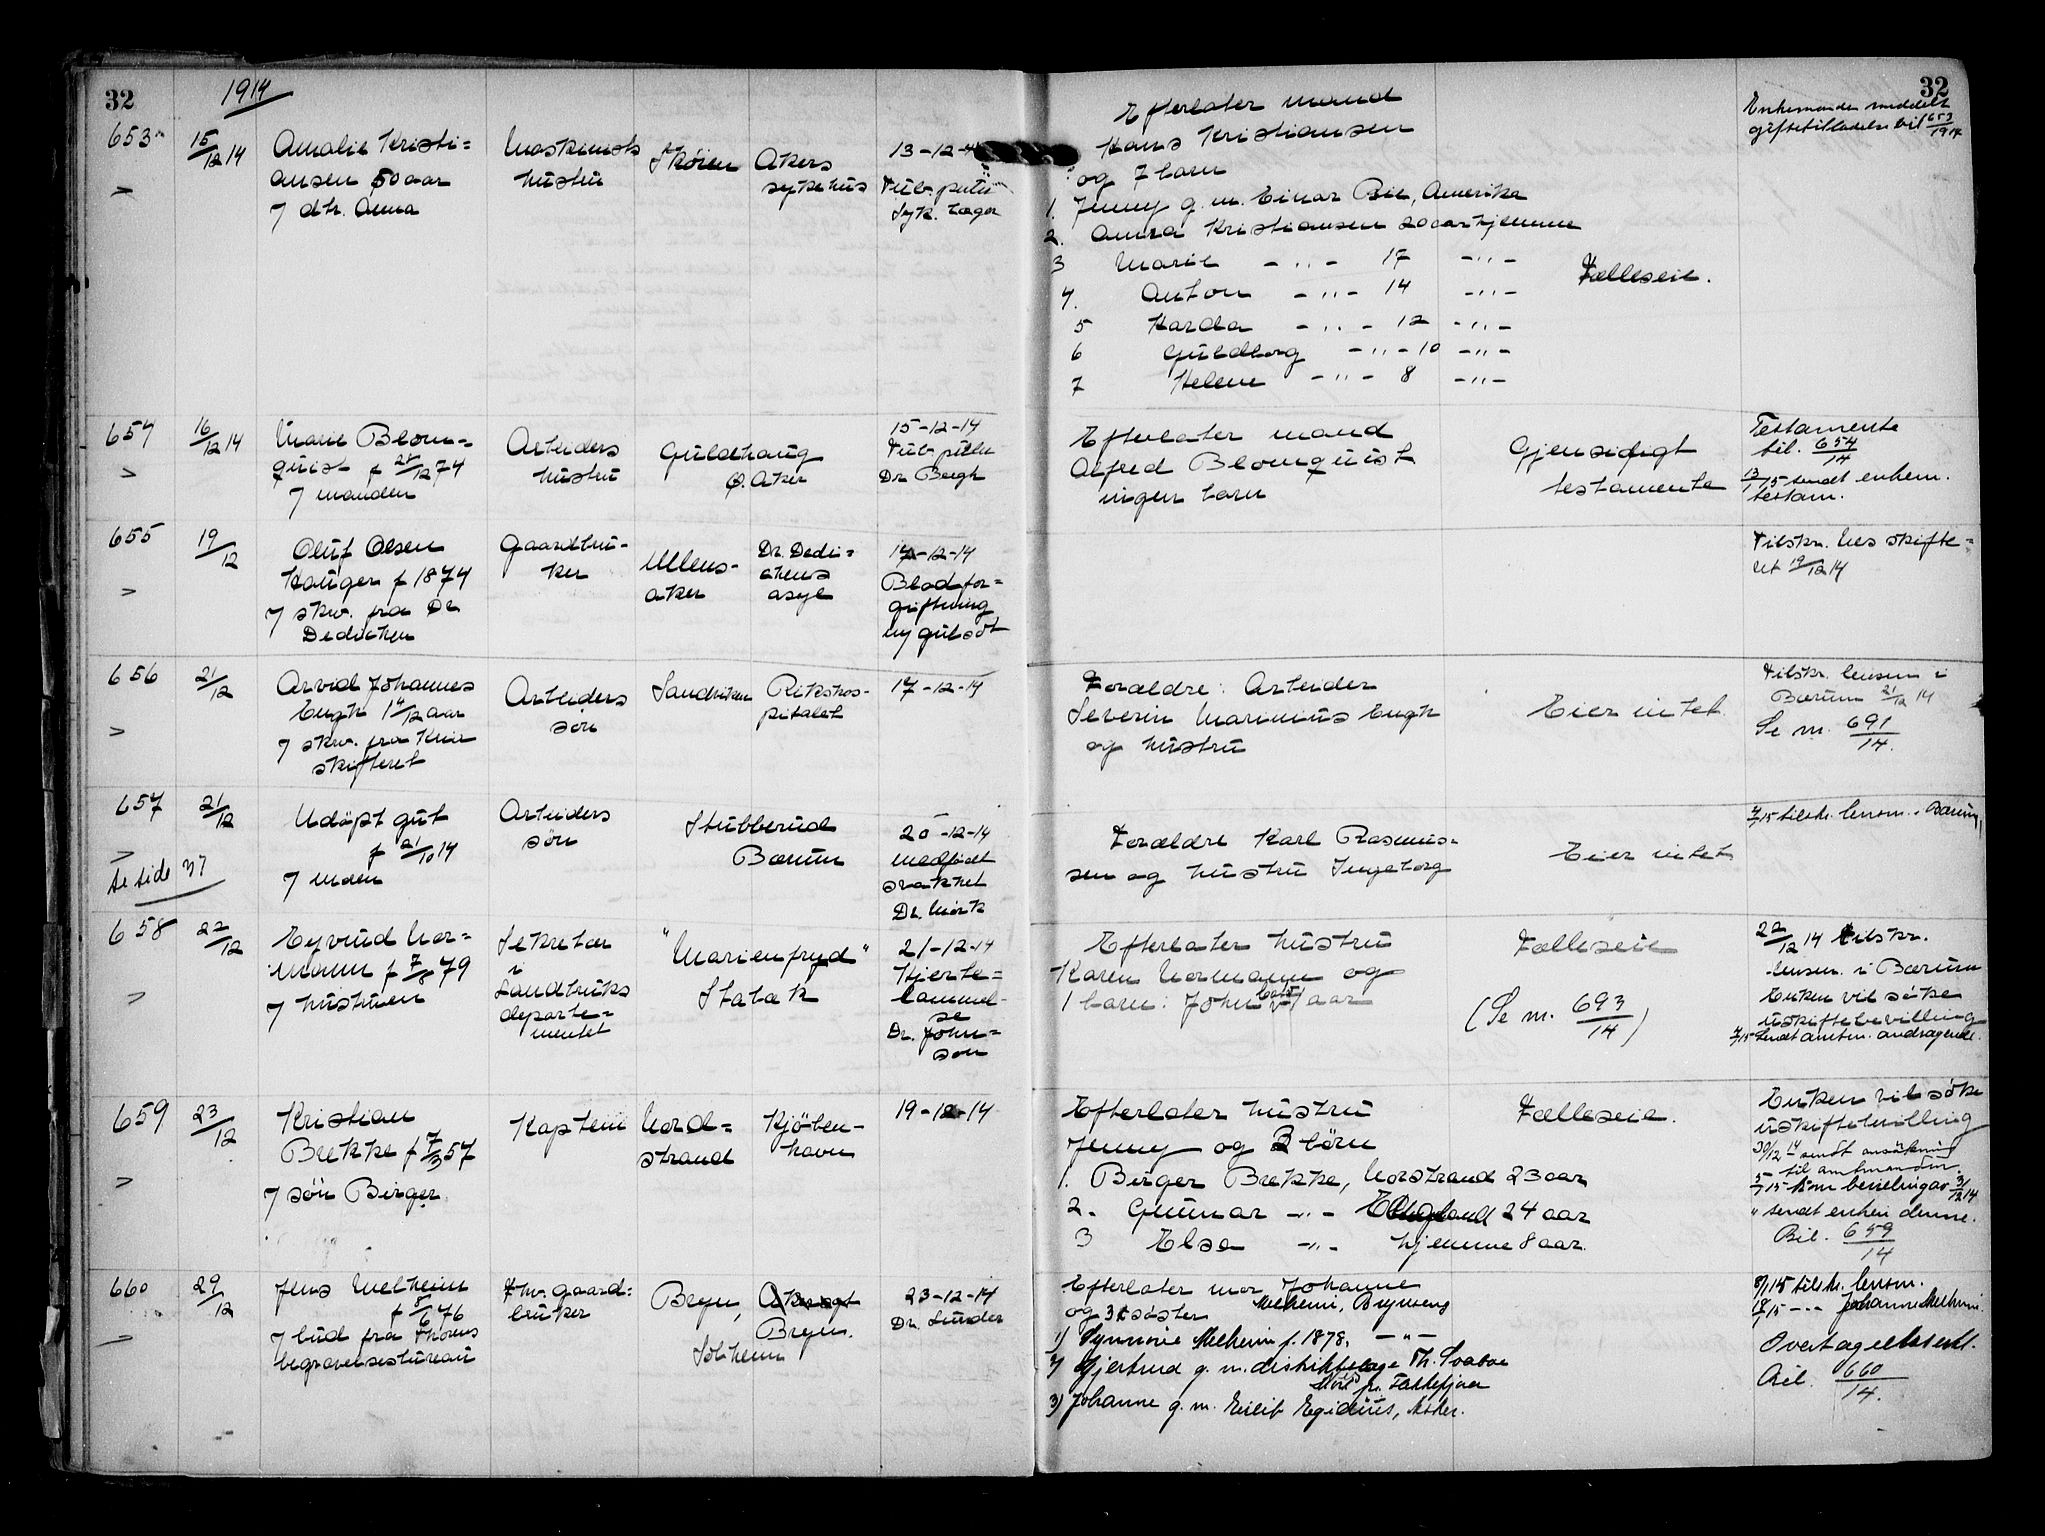 32
1914
32
653
15/12 14
Amalie Kristi=
ansen 50 aar
7 dtr. Anna
Maskinists
hustru
Skøien
Akers
sykehus
13-12-14
Tub. pulm
Syk. læger
Efterlater mand
Hans Kristiansen
og 7 barn
1. Jenny g. m. Einar Bie, Amerika
2. Anna Kristiansen 20 aar hjemme
3 Marie -"- 17 -"-
4. Anton -"- 14 -"-
5 Harda -"- 12 -"-
6 Guldborg -"- 10 -"-
7 Helene -"- 8 -"-
Fælleseie.
Enkemanden meddelt
giftetilladelse bil 653/1914
654
16/12 14
Marie Blom=
quist f 28/12 74
7 manden
Arbeiders
hustru
Guldhaug
Ø. Aker
15-12-14
Tub. pulm
Dr Bergh
Efterlater mand
Alfred Blomquist
ingen barn
Gjensidigt
testamente
Testamente
bil. 654/14
13/1 15 sendt enkem.
testam.
655
19/12
Oluf Olsen
Hauger f 1874
7 skr. fra Dr
Dedichen
Gaardbru-
ker
Ullens-
aker
Dr. Dedi=
chens
asyl
14-12-14
Blodfor=
giftning
og gulsot
Tilskr. Nes skifte=
ret 19/12 14
656
21/12
Arvid Johannes
Engh 1 4/12 aar
7 skr. fra Kria
skifteret
Arbeiders
søn
Sandviken
Rikshos-
pitalet
17-12-14
Forældre: Arbeider
Severin Marinius Engh
og hustru
Eier intet
Tilskr. lensm i
Bærum 21/12 14
Se m. 691/14.
657
21/12
se side 37
Udøpt gut
f 21/10 14
7 moren
Arbeiders
søn
Stubberud
Bærum
20-12-14
medfødt
svakhet
Dr. Mørk
Forældre Karl Rasmus=
sen og hustru Ingeborg
Eier intet
4/1 15 tilskr. lensm. i Bærum
658
22/12
Eyvind Nor=
mann f 7/8 79
7 hustruen
Sekretær
i
Landbruks
departe=
mentet
"Marienfryd"
Stabæk
21-12-14
Hjerte=
lammel-
se
Dr. John=
son
Efterlater hustru
Karen Normann og
1 barn: John aar
Fælleseie
(Se m. 693/14)
22/12 14 tilskr.
lensm. i Bærum
Enken vil søke
uskiftebevilling
4/1 15 sendt amtm. andragende.
659
23/12
Kristian
Brekke f 7/3 57
7 søn Birger
Kaptein
Nord=
strand
Kjøben-
havn
19-12-14
Efterlater hustru
Jenny og 3 börn
1. Birger Brekke, Norstrand 23 aar
2. Gunnar -"- England 24 aar
3 Elsa -"- hjemme 8 aar.
Fælleseie.
Enken vil søke
uskiftebevilling
30/12 14 sendt ansøkning
til amtmanden
5/1 15 kom bevilling av 31/12 14
" sendt enken denne.
Bil. 659/14
660
29/12
Jens Melheim
f 8/6 76
7 bud fra Thorus
begravelsesbureau
Fhv. gaard=
bruker
Bryn,
Bryn.
Solheim
23-12-14
Dr. Sunder
Efterlater mor Johanne
Melheim, Brynseng
og 3 søster
1) Synnøve Melheim f. 1878. -"-
2) Gjertrud g. m. distriktslæge Th. Svaboe
3) Johanne g. m. Eilif Egidius, Asker.
8/1 15 tilskr. lensm.
18/1 15 -"- Johanne Melheim
Overtagelseserkl.
Bil. 660/14.